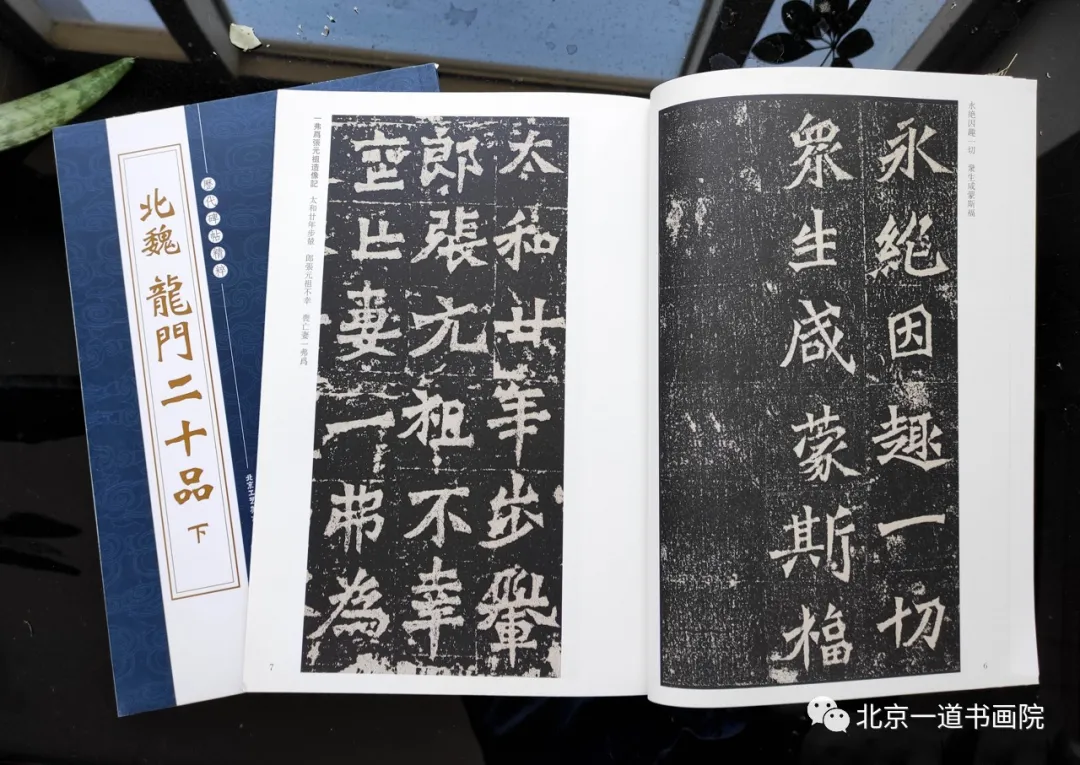 歷代碑帖精粹
北魏
龍門二十品
下
永絕因趣一切 眾生咸蒙斯福
永絕因趣一切
眾生咸蒙斯福
6
太和廿年步轝
郎張元祖不幸
喪亡妻一弗為
一弗爲張元祖造像記 太和廿年步轝 郎張元祖不幸 喪亡妻一弗爲
7
北京一道书画院